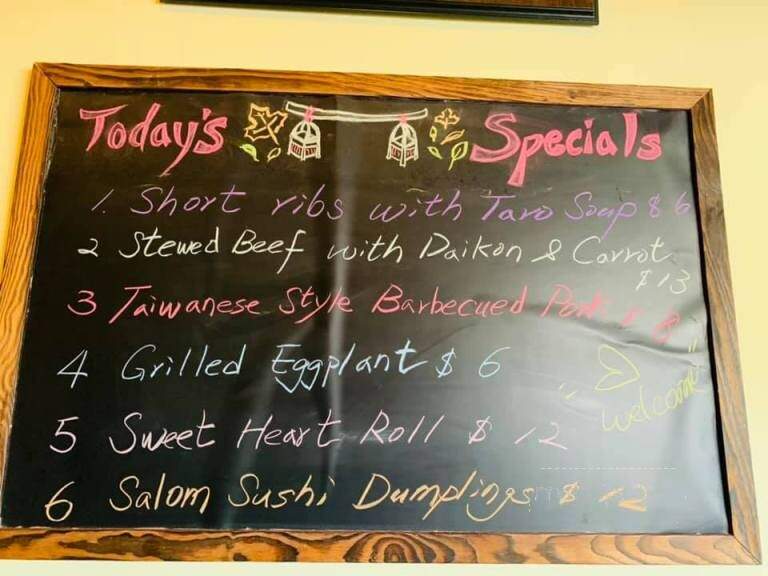 Today's Specials
1. Short ribs with Taro Soup $ 6
2 Stewed Beef with Daikon & Carrot
$13
3 Taiwanese Style Barbecued Pork $ 8
4 Grilled Eggplant $ 6
welcome
5 Sweet Heart Roll $ 12
6 Salom Sushi Dumplings $ 12